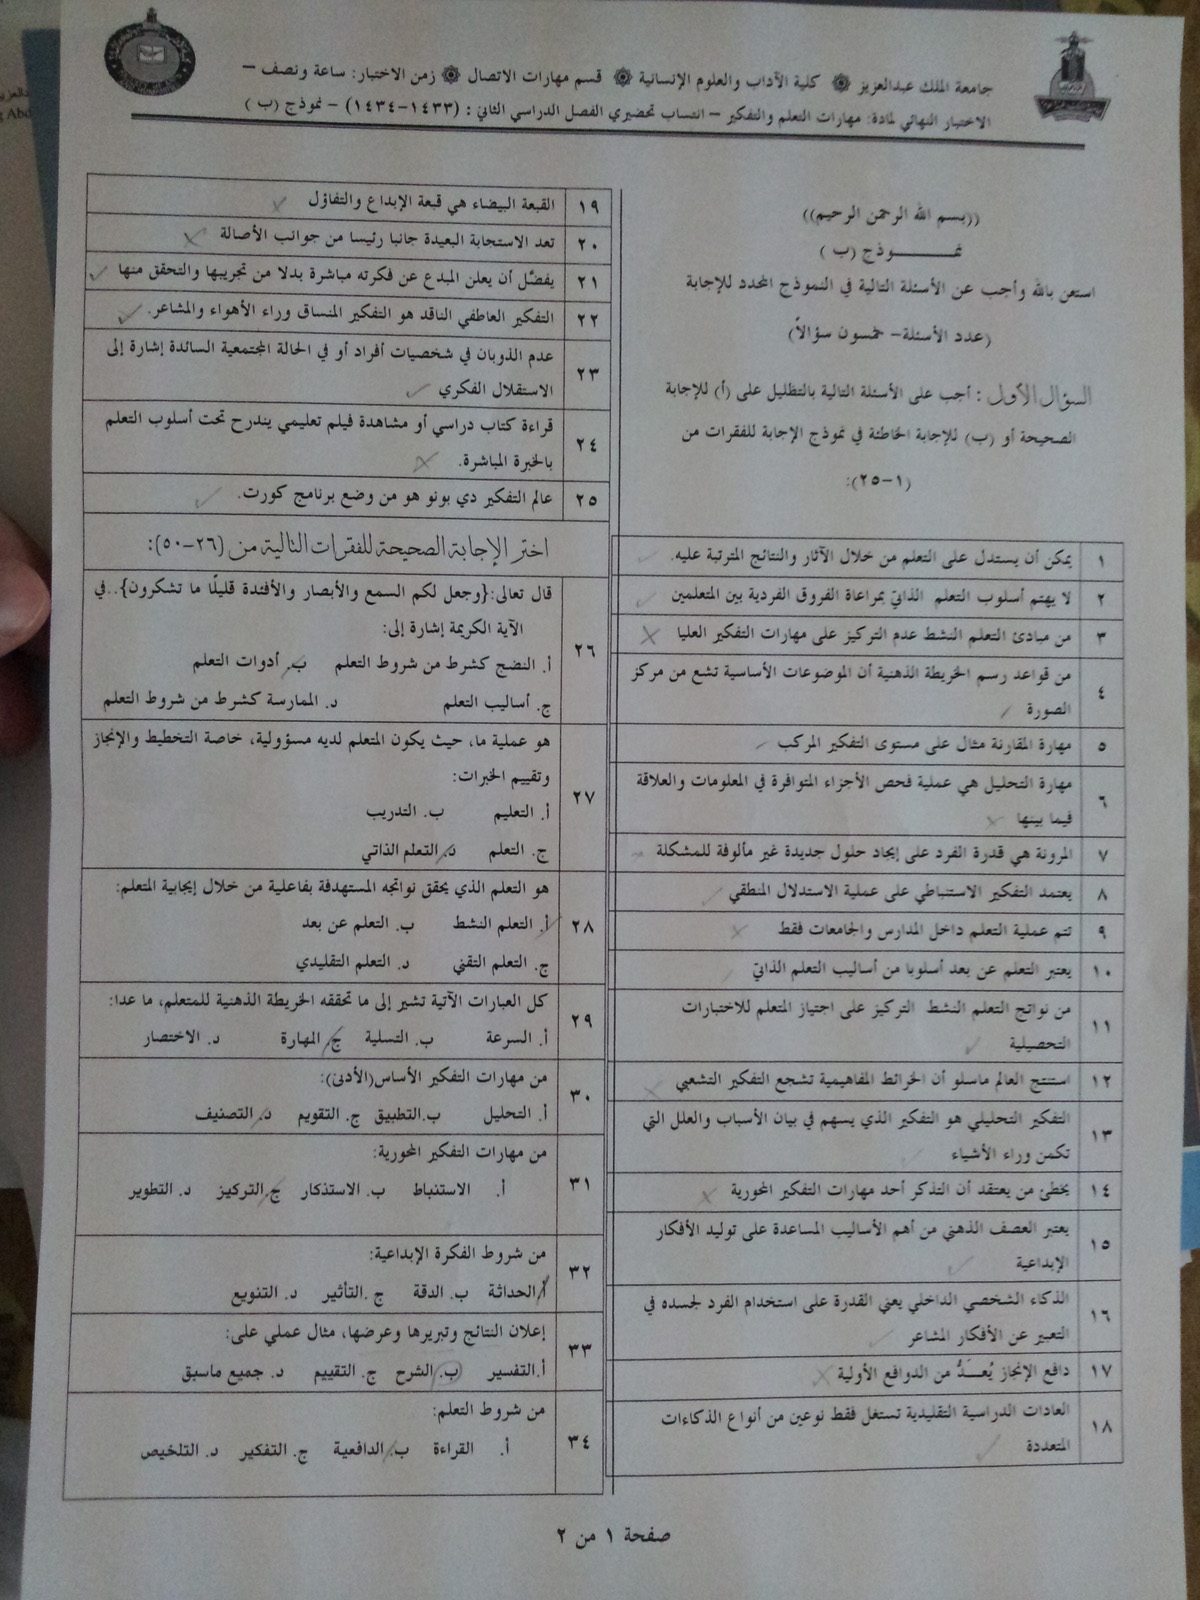 جامعة الملك عبدالعزيز ۞ كلية الآداب والعلوم الإنسانية ۞ قسم مهارات الاتصال ۞ زمن الاختبار: ساعة ونصف –
الاختبار النهائي لمادة: مهارات التعلم والتفكير – انتساب تحضيري الفصل الدراسي الثاني : (١٤٣٣-١٤٣٤) – نموذج (ب )
((بسم الله الرحمن الرحيم))
نمـــــــــوذج (ب )
استعن بالله وأجب عن الأسئلة التالية في النموذج المحدد للإجابة
(عدد الأسئلة- خمسون سؤالاً)
السؤال الأول : أجب على الأسئلة التالية بالتظليل على (أ) للإجابة
الصحيحة أو (ب) للإجابة الخاطئة في نموذج الإجابة للفقرات من
(١-٢٥):
١ يمكن أن يستدل على التعلم من خلال الآثار والنتائج المترتبة عليه.
٢ لا يهتم أسلوب التعلم الذاتي بمراعاة الفروق الفردية بين المتعلمين
٣ من مبادئ التعلم النشط عدم التركيز على مهارات التفكير العليا
٤ من قواعد رسم الخريطة الذهنية أن الموضوعات الأساسية تشع من مركز
الصورة
٥ مهارة المقارنة مثال على مستوى التفكير المركب
٦ مهارة التحليل هي عملية فحص الأجزاء المتوافرة في المعلومات والعلاقة
فيما بينها
٧ المرونة هي قدرة الفرد على إيجاد حلول جديدة غير مألوفة للمشكلة
٨ يعتمد التفكير الاستنباطي على عملية الاستدلال المنطقي
٩ تتم عملية التعلم داخل المدارس والجامعات فقط
١٠ يعتبر التعلم عن بعد أسلوبا من أساليب التعلم الذاتي
١١ من نواتج التعلم النشط التركيز على اجتياز المتعلم للاختبارات
التحصيلية
١٢ استنتج العالم ماسلو أن الخرائط المفاهيمية تشجع التفكير التشعبي
١٣ التفكير التحليلي هو التفكير الذي يسهم في بيان الأسباب والعلل التي
تكمن وراء الأشياء
١٤ يخطئ من يعتقد أن التذكر أحد مهارات التفكير المحورية
١٥ يعتبر العصف الذهني من أهم الأساليب المساعدة على توليد الأفكار
الإبداعية
١٦ الذكاء الشخصي الداخلي يعني القدرة على استخدام الفرد لجسده في
التعبير عن الأفكار المشاعر
١٧ دافع الإنجاز يُعـــدُّ من الدوافع الأولية
١٨ العادات الدراسية التقليدية تستغل فقط نوعين من أنواع الذكاءات
المتعددة
١٩ القبعة البيضاء هي قبعة الإبداع والتفاؤل
٢٠ تعد الاستجابة البعيدة جانبا رئيسا من جوانب الأصالة
٢١ يفضّل أن يعلن المبدع عن فكرته مباشرة بدلا من تجريبها والتحقق منها
٢٢ التفكير العاطفي الناقد هو التفكير المنساق وراء الأهواء والمشاعر.
٢٣ عدم الذوبان في شخصيات أفراد أو في الحالة المجتمعية السائدة إشارة إلى
الاستقلال الفكري
٢٤ قراءة كتاب دراسي أو مشاهدة فيلم تعليمي يندرج تحت أسلوب التعلم
بالخبرة المباشرة.
٢٥ عالم التفكير دي بونو هو من وضع برنامج كورت.
اختر الإجابة الصحيحة للفقرات التالية من (٢٦-٥٠):
٢٦ قال تعالى:{وجعل لكم السمع والأبصار والأفئدة قليلًا ما تشكرون}..في
الآية الكريمة إشارة إلى:
أ. النضج كشرط من شروط التعلم ب. أدوات التعلم
ج. أساليب التعلم د. الممارسة كشرط من شروط التعلم
٢٧ هو عملية ما، حيث يكون المتعلم لديه مسؤولية، خاصة التخطيط والإنجاز
وتقييم الخبرات:
أ. التعليم ب. التدريب
ج. التعلم د. التعلم الذاتي
٢٨ هو التعلم الذي يحقق نواتجه المستهدفة بفاعلية من خلال إيجابية المتعلم:
أ. التعلم النشط ب. التعلم عن بعد
ج. التعلم التقني د. التعلم التقليدي
٢٩ كل العبارات الآتية تشير إلى ما تحققه الخريطة الذهنية للمتعلم، ما عدا:
أ. السرعة ب. التسلية ج. المهارة د. الاختصار
٣٠ من مهارات التفكير الأساس(الأدنى):
أ. التحليل ب.التطبيق ج. التقويم د. التصنيف
٣١ من مهارات التفكير المحورية:
أ. الاستنباط ب. الاستذكار ج. التركيز د. التطوير
٣٢ من شروط الفكرة الإبداعية:
أ.الحداثة ب. الدقة ج .التأثير د. التنويع
٣٣ إعلان النتائج وتبريرها وعرضها، مثال عملي على:
أ.التفسير ب. الشرح ج. التقييم د. جميع ماسبق
٣٤ من شروط التعلم:
أ. القراءة ب. الدافعية ج. التفكير د. التلخيص
صفحة ١ من ٢